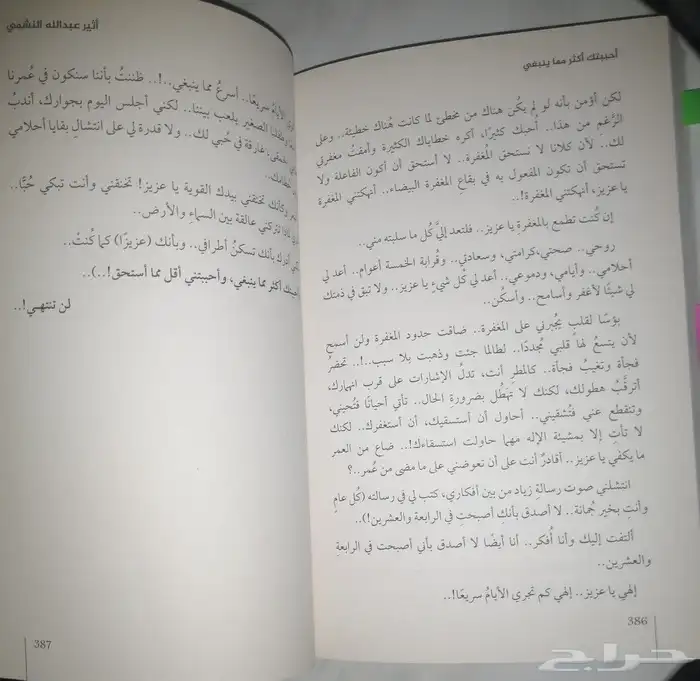 أحببتك أكثر مما ينبغي
لكن أؤمن بأنه لو لم يكُن هناك من مخطئ لما كانت هُناك خطيئة.. وعلى
الرَّغم من هذا.. أُحبك كثيرًا، أكره خطاياك الكثيرة وأمقتُ مغفرتي
لك.. لأن كلانا لا نستحق المغفرة.. لا أستحق أن أكون الفاعلة ولا
تستحق أن تكون المفعول به في بقاعِ المغفرة البيضاء.. أنهكتني المغفرة
يا عزيز، أنهكتني المغفرة!..
إن كُنت تطمع بالمغفرة يا عزيز.. فلتعد إليَّ كُل ما سلبته مني..
روحي.. صحتي، كرامتي، وسعادتي.. وقُرابة الخمسة أعوام.. أعد لي
أحلامي.. وأيامي، ودموعي.. أعد لي كُل شيءٍ يا عزيز.. ولا تبق في ذمتك
لي شيئًا لأغفر وأسامح.. وأسكُن..
بؤسًا لقلبٍ يُجبرني على المغفرة.. ضاقت حدود المغفرة ولن أسمح
لأن يتسعُ لها قلبي مُجددًا.. لطالما جئت وذهبت بلا سبب..!.. تحضرُ
فجأة وتغيبُ فجأة.. كالمطرِ أنت، تدلُ الإشارات على قرب انهمارك،
أترقَّبُ هطولك، لكنك لا تهطُل بضرورةِ الحال.. تأتي أحيانًا فتُحييني،
وتنقطع عني فتُشقيني.. أحاول أن أستسقيك، أن أستغفرك.. لكنك
لا تأتِ إلا بمشيئة الإله مهما حاولت استسقاءك!.. ضاع من العمر
ما يكفي يا عزيز.. أقادرٌ أنت على أن تعوضني على ما مضى من عُمر..؟
انتشلني صوت رسالةِ زياد من بين أفكاري، كتب لي في رسالته (كُل عامٍ
وأنتِ بخير جُمانة.. لا أصدق بأنكِ أصبحتِ في الرابعة والعشرين!)..
ألتفت إليك وأنا أُفكر.. أنا أيضًا لا أصدق بأني أصبحت في الرابعةِ
والعشرين..
إلهي يا عزيز.. إلهي كم تجري الأيامُ سريعًا!..
386
أثير عبدالله النشمي
الأيامُ سريعًا.. أسرعُ مما ينبغي..!.. ظننتُ بأننا سنكون في عُمرنا
وطفلنا الصغير يلعب بيننا.. لكني أجلس اليوم بجوارك، أندبُ
غارقة في حُبي لك.. ولا قدرة لي على انتشالِ بقايا أحلامي
حطامك..
وكأنك تخنقني بيدك القوية يا عزيز! تخنقني وأنت تبكي حُبًّا..
تتركني عالقة بين السماءِ والأرض..
بأنك تسكنُ أطرافي.. وبأنك (عزيزًا) كما كُنتْ..
أكثر مما ينبغي، وأحببتني أقل مما أستحق!..)..
لن تنتهي!..
387
حراج